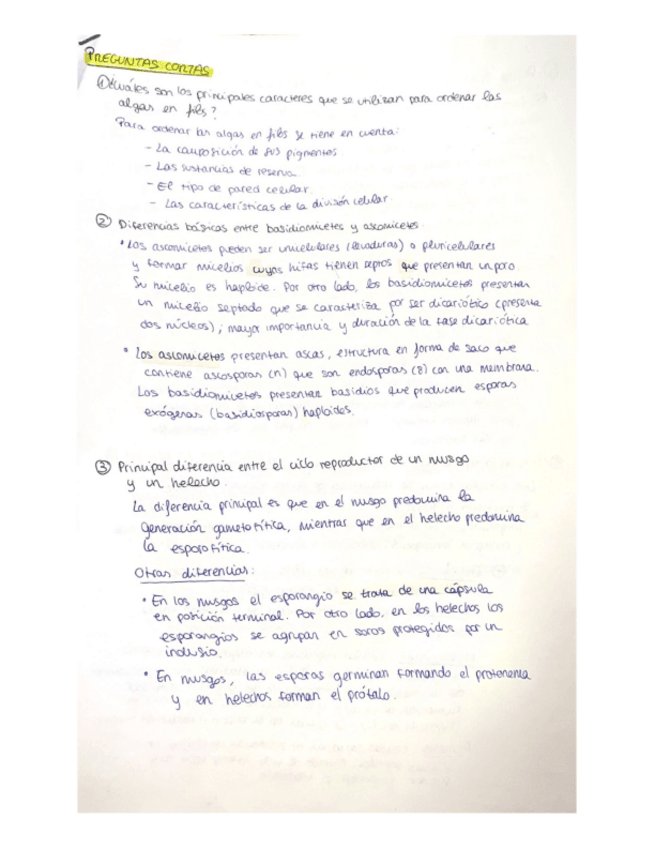 PREGUNTAS CORTAS
① ¿Cuáles son los principales caracteres que se utilizan para ordenar las
algas en filos?
Para ordenar las algas en filos se tiene en cuenta:
- La composición de sus pigmentos
- Las sustancias de reserva
- El tipo de pared celular
- Las características de la división celular
② Diferencias básicas entre basidiomicetes y ascomicetes
• Los ascomicetes pueden ser unicelulares (levaduras) o pluricelulares
y formar micelios cuyas hifas tienen septos que presentan un poro
Su micelio es haploide. Por otro lado, los basidiomicetes presentan
un micelio septado que se caracteriza por ser dicariótico (presenta
dos núcleos); mayor importancia y duración de la fase dicariótica
• Los ascomicetes presentan ascas, estructura en forma de saco que
contiene ascosporas (n) que son endosporas (8) con una membrana.
Los basidiomicetes presentan basidios que producen esporas
exógenas (basidiosporas) haploides.
③ Principal diferencia entre el ciclo reproductor de un musgo
y un helecho.
La diferencia principal es que en el musgo predomina la
generación gametofítica, mientras que en el helecho predomina
la esporofítica.
Otras diferencias:
• En los musgos el esporangio se trata de una cápsula
en posición terminal. Por otro lado, en los helechos los
esporangios se agrupan en soros protegidos por un
indusio.
• En musgos, las esporas germinan formando el protonema
y en helechos forman el prótalo.